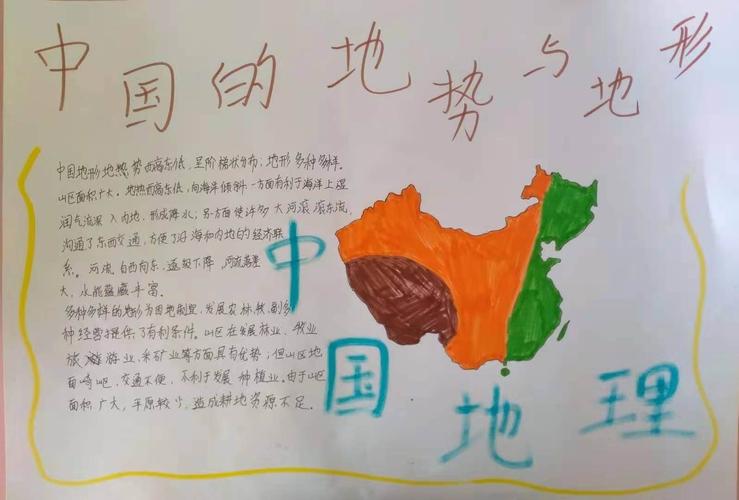 中国的地势与地形
中国地形地势西高东低，呈阶梯状分布；地形多种多样。
山区面积广大。地势西高东低，向海洋倾斜一方面有利于海洋上湿
润气流深入内地，形成降水；另一方面使许多大河滚滚东流，
沟通了东西交通，方便了沿海和内地的经济联
系。河流自西向东，逐级下降，河流落差
大，水能蕴藏丰富。
多种多样的地形为因地制宜，发展农林牧、副多
种经营提供了有利条件。山区在发展林业、牧业
旅游业、采矿业等方面具有优势；但山区地
面崎岖，交通不便，不利于发展种植业。由于山区
面积广大，平原较少，造成耕地资源不足。
中国地理